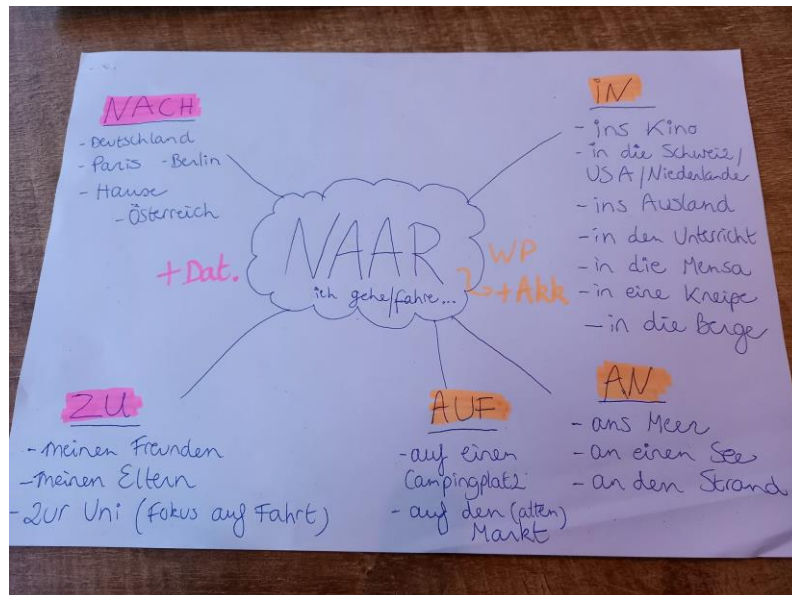 NACH
- Deutschland
- Paris - Berlin
- Hause
- Österreich
+ Dat.
NAAR
ich gehe/fahre...
WP
+ Akk
IN
- ins Kino
- in die Schweiz/
USA/Niederlande
- ins Ausland
- in den Unterricht
- in die Mensa
- in eine Kneipe
- in die Berge
ZU
- meinen Freunden
- meinen Eltern
- zur Uni (Fokus auf Fahrt)
AUF
- auf einen
Campingplatz
- auf den (alten)
Markt
AN
- ans Meer
- an einen See
- an den Strand